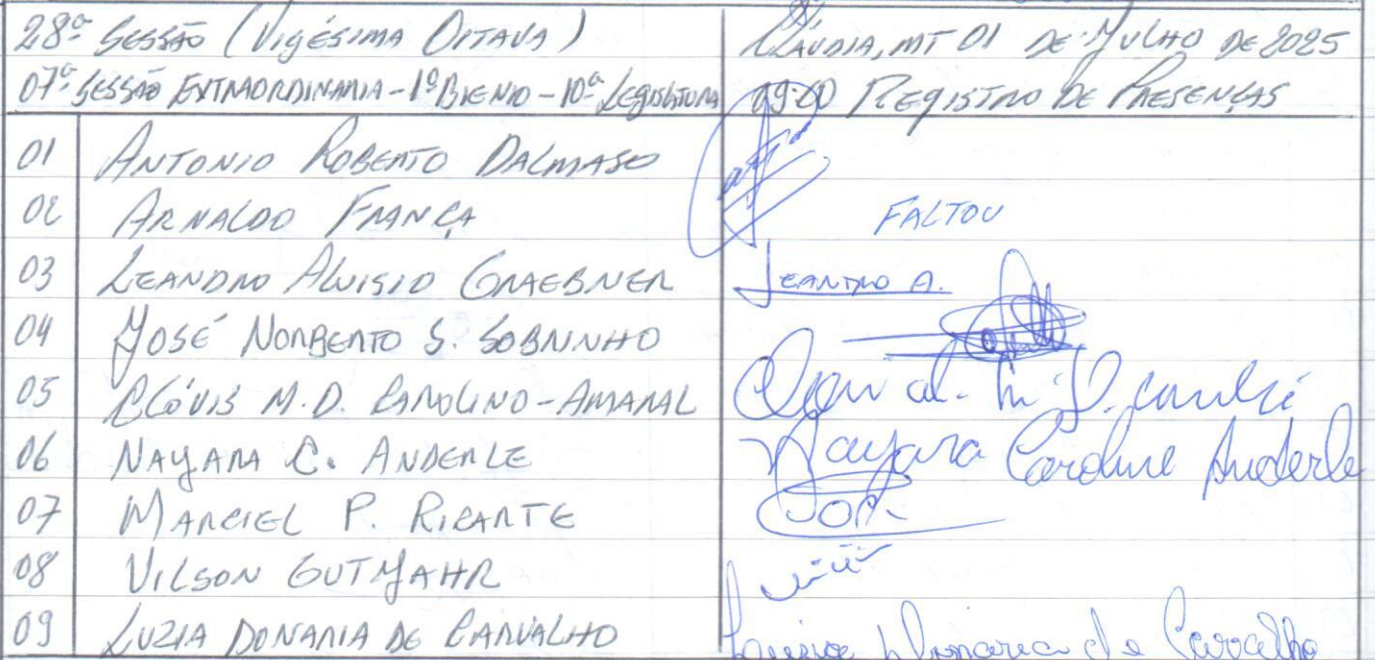 28ª SESSÃO (VIGÉSIMA OITAVA)
CLÁUDIA, MT 01 DE JULHO DE 2025
07ª SESSÃO EXTRAORDINARIA - 1º BIENIO - 10ª LEGISLATURA
09:00 REGISTRO DE PRESENÇAS
01 ANTONIO ROBERTO DALMASO
02 ARNALDO FRANÇA FALTOU
03 LEANDRO ALUISIO GRAEBNER LEANDRO A.
04 JOSÉ NORBERTO S. SOBRINHO
05 CLÓVIS M.D. CAROLINO-AMARAL
06 NAYARA C. ANDERLE Nayara Caroline Anderle
07 MARCIEL P. RICARTE
08 VILSON GUTJAHR
09 LUZIA DONARIA DE CARVALHO Luzia Donaria de Carvalho